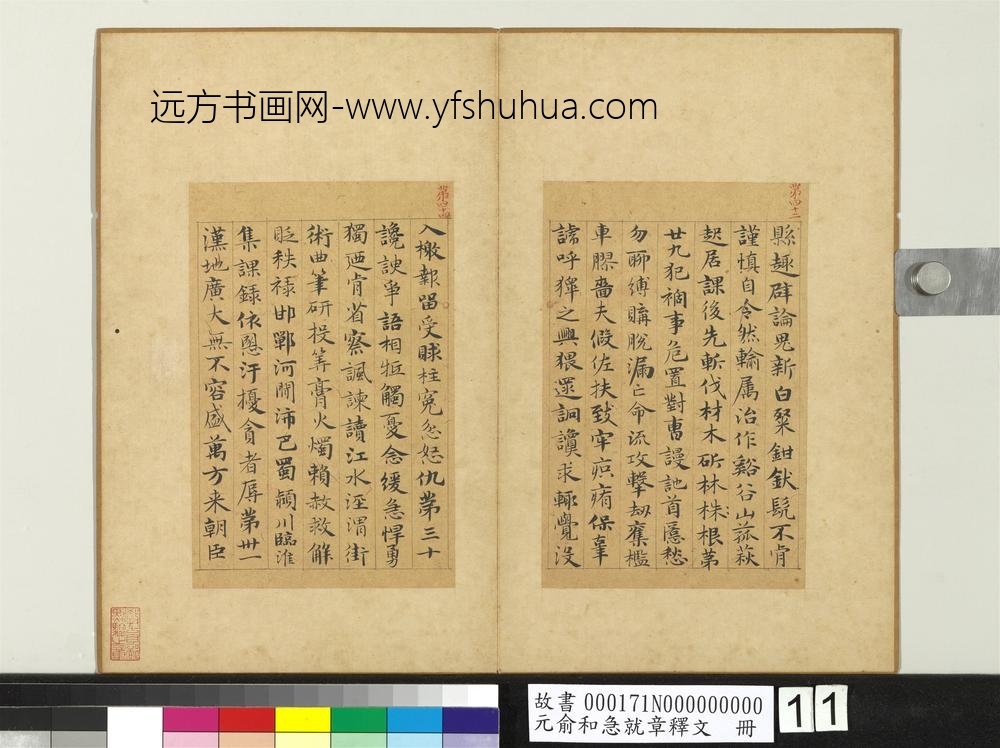 远方书画网-www.yfshuhua.com
第四十三
縣趣辟論鬼新白粲鉗釱髡不肯
謹慎自令然輸属治作谿谷山菰萩
起居課後先斬伐材木斫林株根苐
廿九犯禍事危置對曹謾訑首匿愁
勿聊縛購脫漏亡命流攻擊劫奪檻
車膠嗇夫假佐扶致牢疻痏保辜
謕呼獆之興猥逯詗讂求輒覺没
第四十四
入檄報留受賕枉冤忿怒仇苐三十
讒諛爭語相牴觸憂念緩急悍勇
獨迺肯省察諷諫讀江水涇渭街
術曲筆研投筭膏火燭賴赦救解
貶秩祿邯鄲河間沛巴蜀潁川臨淮
集課録依恩汙擾貪者辱苐卅一
漢地廣大無不容盛萬方来朝臣
故書 000171N000000000
元俞和急就章釋文 冊
11